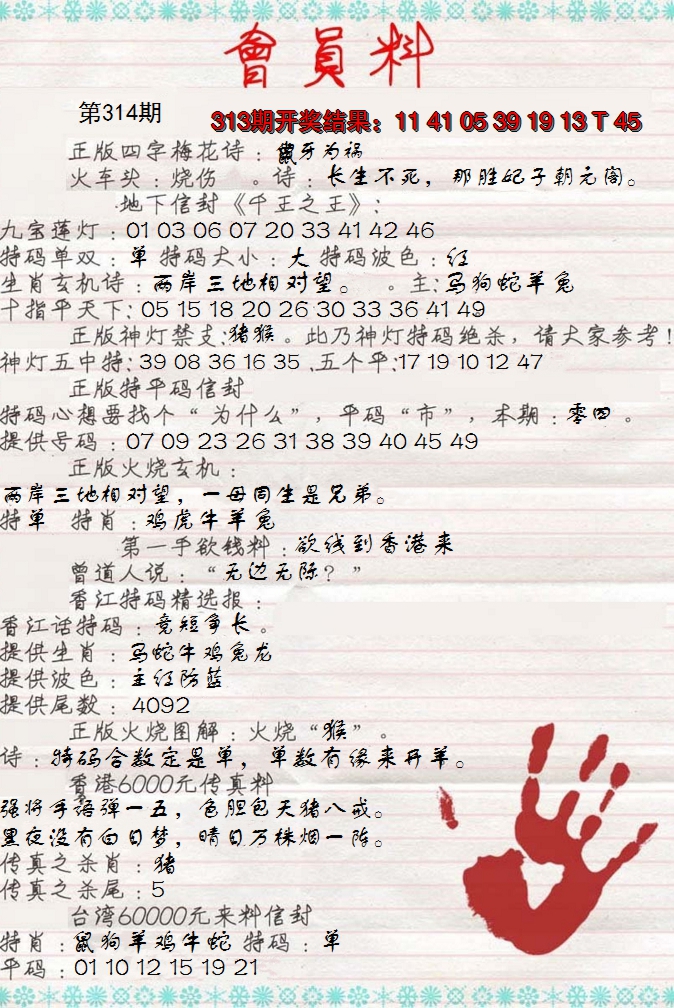 會員料
第314期
313期开奖结果：11 41 05 39 19 13 T 45
正版四字梅花诗：鼠牙为祸
火车头：烧伤 。诗：长生不死，那胜妃子朝元阁。
·地下信封《千王之王》：
九宝莲灯：01 03 06 07 20 33 41 42 46
特码单双：单 特码大小：大 特码波色：红
生肖玄机诗：两岸三地相对望。 。主:马狗蛇羊兔
十指平天下: 05 15 18 20 26 30 33 36 41 49
正版神灯禁支:猪猴。此乃神灯特码绝杀，请大家参考!
神灯五中特: 39 08 36 16 35 .五个平:17 19 10 12 47
正版特平码信封
特码心想要找个“为什么”，平码“市”，本期：零四。
提供号码：07 09 23 26 31 38 39 40 45 49
正版火烧玄机：
两岸三地相对望，一母同生是兄弟。
特单 特肖：鸡虎牛羊兔
第一手欲钱料：欲钱到香港来
曾道人说：“无边无际？”
香江特码精选报：
香江话特码：竞短争长。
提供生肖：马蛇牛鸡兔龙
提供波色：主红防蓝
提供尾数：4092
正版火烧图解：火烧“猴”。
诗：特码合数定是单，单数有缘来开羊。
香港6000元传真料
强将手语弹一五，色胆包天猪八戒。
黑夜没有白日梦，晴日万株烟一阵。
传真之杀肖：猪
传真之杀尾：5
台湾60000元来料信封
特肖：鼠狗羊鸡牛蛇 特码：单
平码：01 10 12 15 19 21